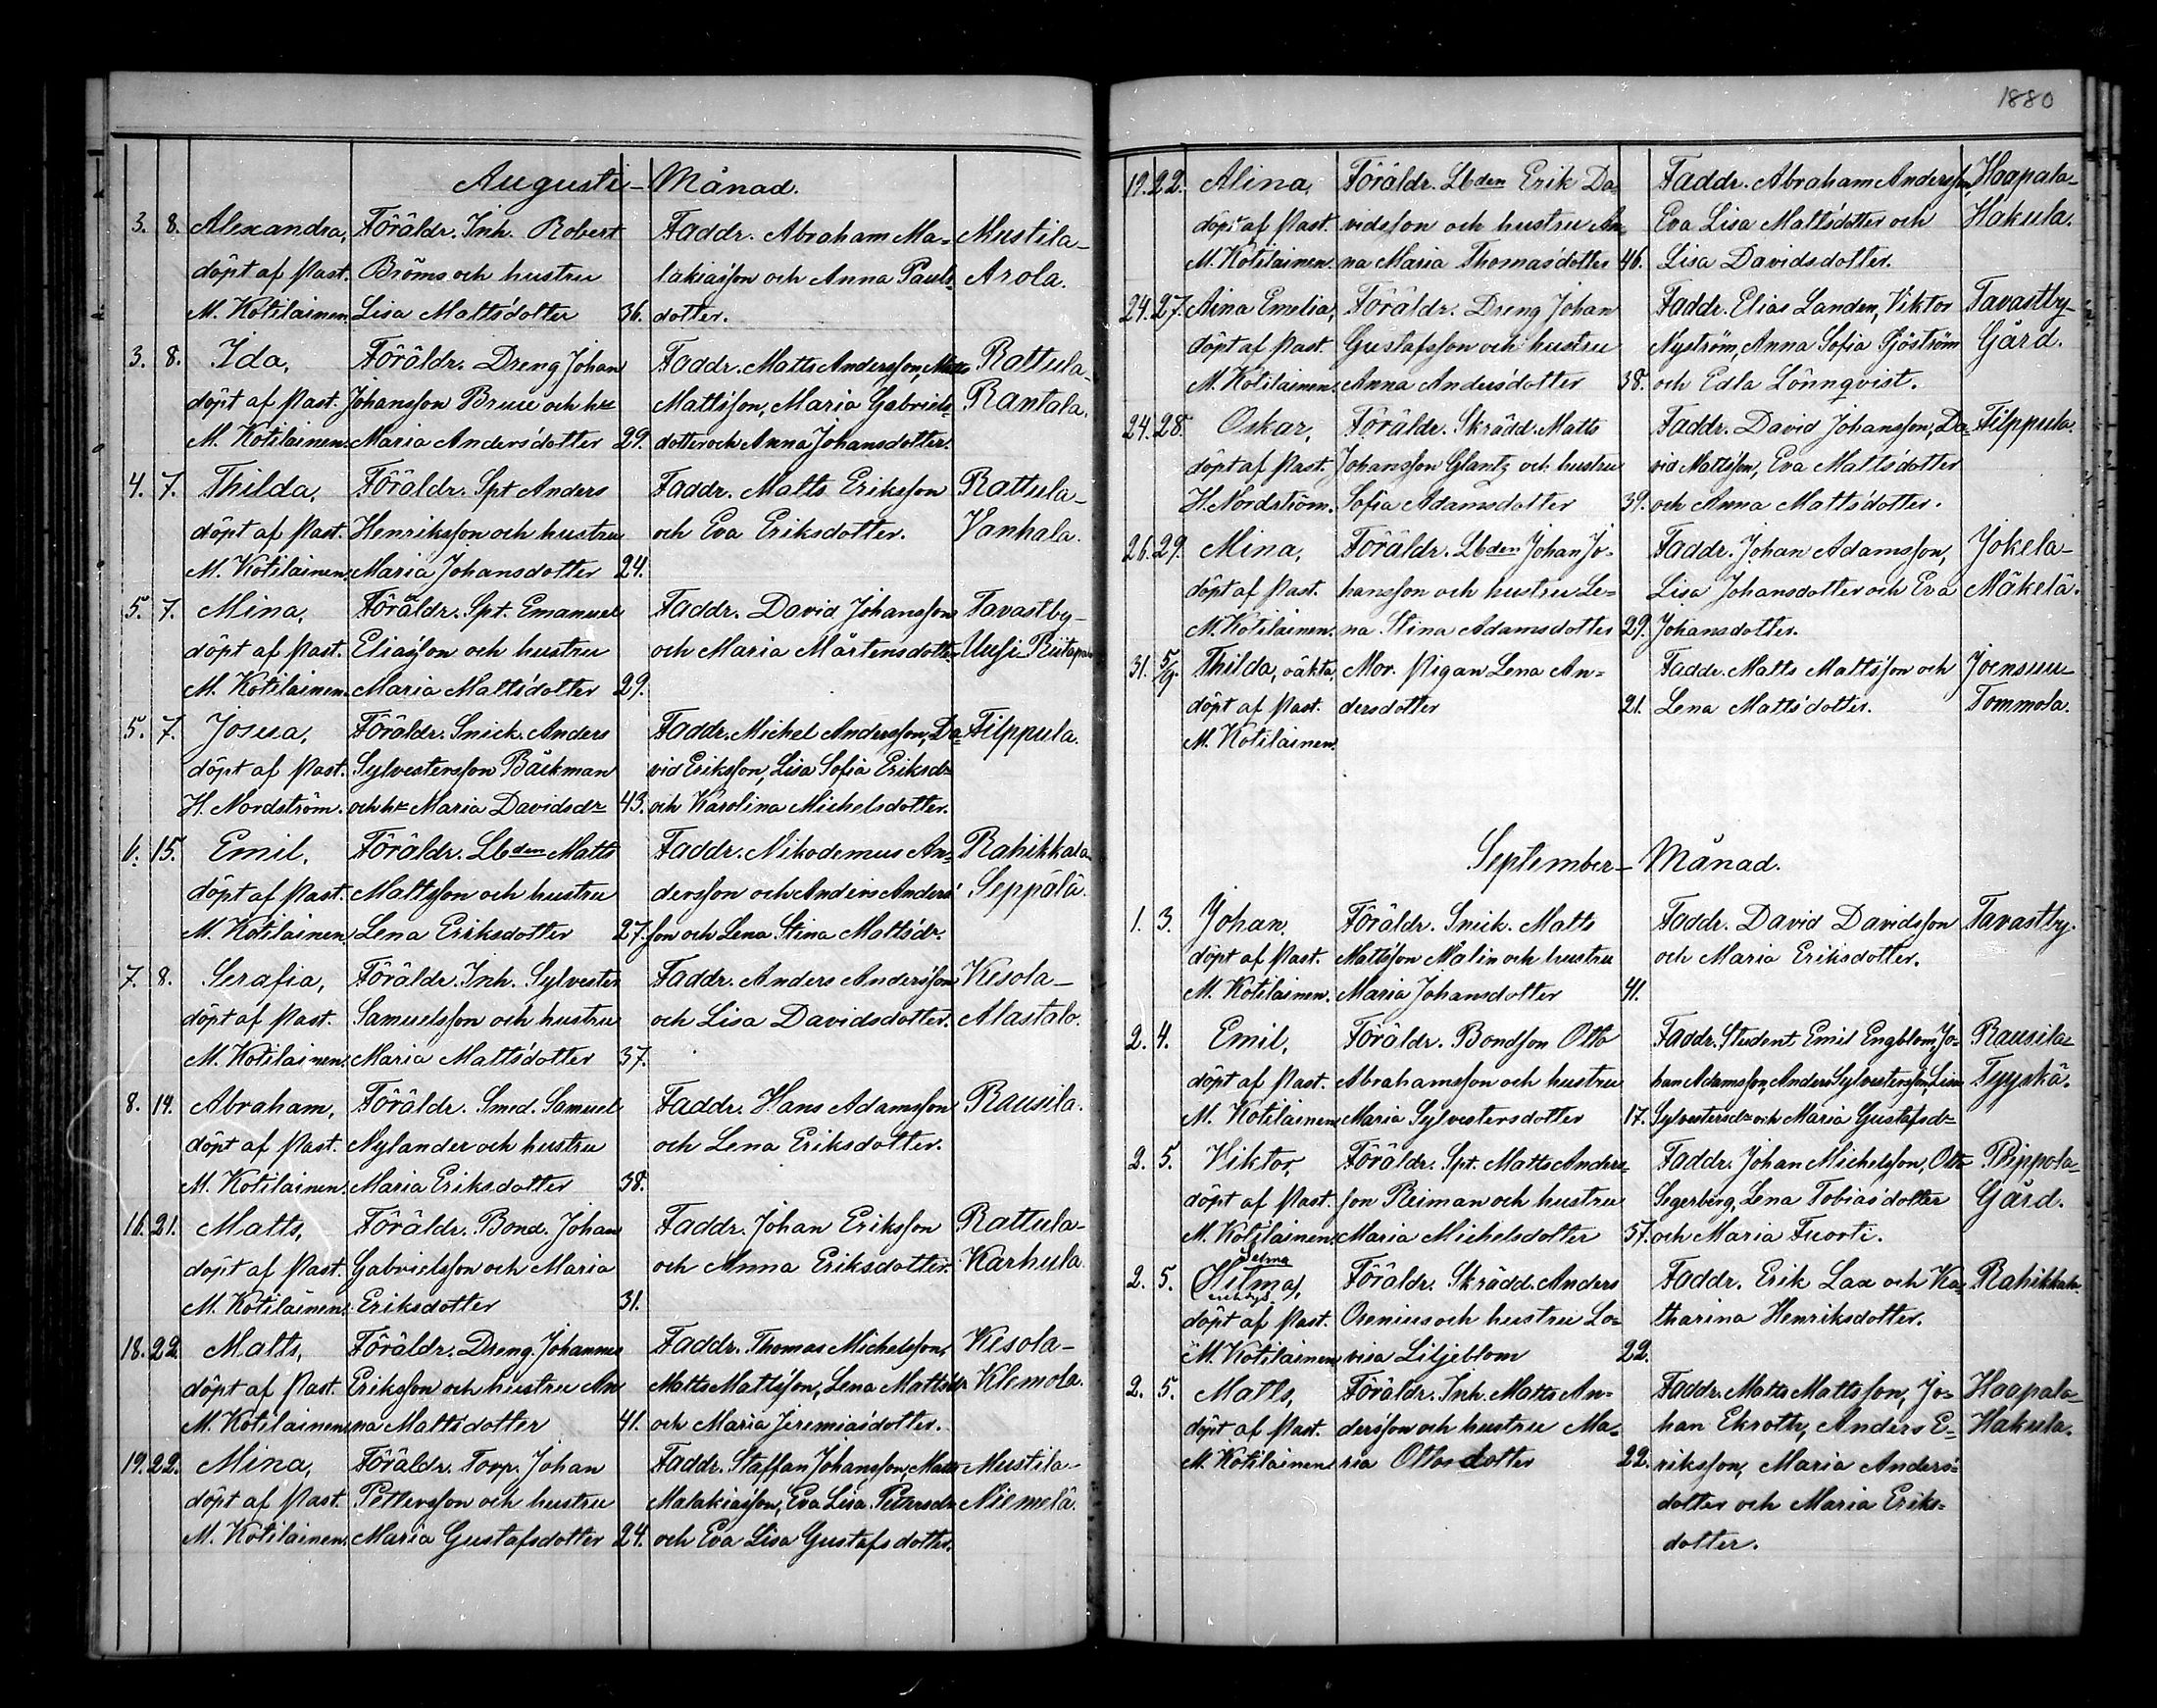 1880
Augusti- Månad.
3. 8. Alexandra, Föräldr. Inh. Robert Faddr. Abraham Ma- Mustila-
döpt af Past. Bröms och hustru lakiasson och Anna Pauls- Arola.
M. Kotilainen. Lisa Mattsdotter 36. dotter.
3. 8. Ida, Föräldr. Dreng Johan Faddr. Matts Andersson, Matts Rattula-
döpt af Past. Johansson Bruse och hu Mattsson, Maria Gabriels- Rantala.
M. Kotilainen. Maria Andersdotter 29. dotter och Anna Johansdotter.
4. 7. Thilda, Föräldr. Spt Anders Faddr. Matts Eriksson Rattula-
döpt af Past. Henriksson och hustru och Eva Eriksdotter. Vanhala.
M. Kotilainen. Maria Johansdotter 24.
5. 7. Mina, Föräldr. Spt. Emanuel Faddr. David Johansson Tavastby-
döpt af Past. Eliasson och hustru och Maria Mårtensdotter Uusi-
M. Kotilainen. Maria Mattsdotter 29.
5. 7. Josua, Föräldr. Snick. Anders Faddr. Michel Andersson, Da- Filppula.
döpt af Past. Sylvestersson Bäckman vid Eriksson, Lisa Sofia Eriksdr
H. Nordström. och hu Maria Davidsdr 43. och Karolina Michelsdotter.
6. 15. Emil, Föräldr. Lbden Matts Faddr. Nikodemus An- Rahikkala
döpt af Past. Mattsson och hustru dersson och Anders Anders- Seppälä.
M. Kotilainen. Lena Eriksdotter 27. son och Lena Stina Mattsdr.
7. 8. Serafia, Föräldr. Inh. Sylvester Faddr. Anders Andersson Kisola-
döpt af Past. Samuelsson och hustru och Lisa Davidsdotter. Alastalo.
M. Kotilainen. Maria Mattsdotter 37.
8. 14. Abraham, Föräldr. Smed. Samuel Faddr. Hans Adamsson Rausila.
döpt af Past. Nylander och hustru och Lena Eriksdotter.
M. Kotilainen. Maria Eriksdotter 38.
16. 21. Matts, Föräldr. Bond. Johan Faddr. Johan Eriksson Rattula-
döpt af Past. Gabrielsson och Maria och Anna Eriksdotter. Karhula
M. Kotilainen. Eriksdotter 31.
18. 22. Matts, Föräldr. Dreng Johannes Faddr. Thomas Michelsson, Kisola-
döpt af Past. Eriksson och hustru An Matts Mattsson, Lena Mattsdr Klemola.
M. Kotilainen. na Mattsdotter 41. och Maria Jeremiasdotter.
19. 22. Mina, Föräldr. Torp. Johan Faddr. Staffan Johansson, Matts Mustila-
döpt af Past. Pettersson och hustru Malakiasson, Eva Lisa Petersdr Niemelä.
M. Kotilainen. Maria Gustafsdotter 24. och Eva Lisa Gustafsdotter.
19. 22. Alina, Föräldr. Lbden Erik Da- Faddr. Abraham Andersson, Haapala-
döpt af Past. vidsson och hustru An- Eva Lisa Mattsdotter och Hakula.
M. Kotilainen. na Maria Thomasdotter 46. Lisa Davidsdotter.
24. 27. Aina Emelia, Föräldr. Dreng Johan Faddr. Elias Landen, Viktor Tavastby-
döpt af Past. Gustafsson och hustru Nyström, Anna Sofia Sjöström Gård.
M. Kotilainen. Anna Andersdotter 38. och Edla Lönnqvist.
24. 28. Oskar, Föräldr. Skrädd. Matts Faddr. David Johansson, Da- Filppula.
döpt af Past. Johansson Glantz och hustru vid Mattsson, Eva Mattsdotter
H. Nordström. Sofia Adamsdotter 39. och Anna Mattsdotter.
26. 29. Mina, Föräldr. Lbden Johan Jo- Faddr. Johan Adamsson, Jokela-
döpt af Past. hansson och hustru Le- Lisa Johansdotter och Eva Mäkelä.
M. Kotilainen. na Stina Adamsdotter 29. Johansdotter.
31. 5/9. Thilda, oäkta, Mor. Pigan Lena An- Faddr. Matts Mattsson och Joensuu-
döpt af Past. dersdotter 21. Lena Mattsdotter. Tommola.
M. Kotilainen.
September- Månad.
1. 3. Johan, Föräldr. Snick. Matts Faddr. David Davidsson Tavastby.
döpt af Past. Mattsson Malin och hustru och Maria Eriksdotter.
M. Kotilainen. Maria Johansdotter 41.
2. 4. Emil, Föräldr. Bondson Otto Faddr. Student Emil Engblom, Jo- Rausila-
döpt af Past. Abrahamsson och hustru han Adamsson, Anders Sylvestersson, Lisa Tyyskä.
M. Kotilainen. Maria Sylvestersdotter 17. Sylvestersdr och Maria Gustafsdr
2. 5. Viktor, Föräldr. Spt. Matts Anders- Faddr. Johan Michelsson, Otto Pippola-
döpt af Past. son Reiman och hustru Segerberg, Lena Tobiasdotter Gård.
M. Kotilainen. Maria Michelsdotter 37. och Maria Tuorti.
Selma
2. 5. Hilma, Föräldr. Skrädd. Anders Faddr. Erik Lax och Ka- Rahikkala.
döpt af Past. Orenius och hustru Lo- tharina Henriksdotter.
M. Kotilainen. visa Liljeblom 22.
2. 5. Matts, Föräldr. Inh. Matts An- Faddr. Matts Mattsson, Jo- Haapala-
döpt af Past. dersson och hustru Ma- han Ekroth, Anders E- Hakula.
M. Kotilainen. ria Ottosdotter 22. riksson, Maria Anders-
dotter och Maria Eriks-
dotter.